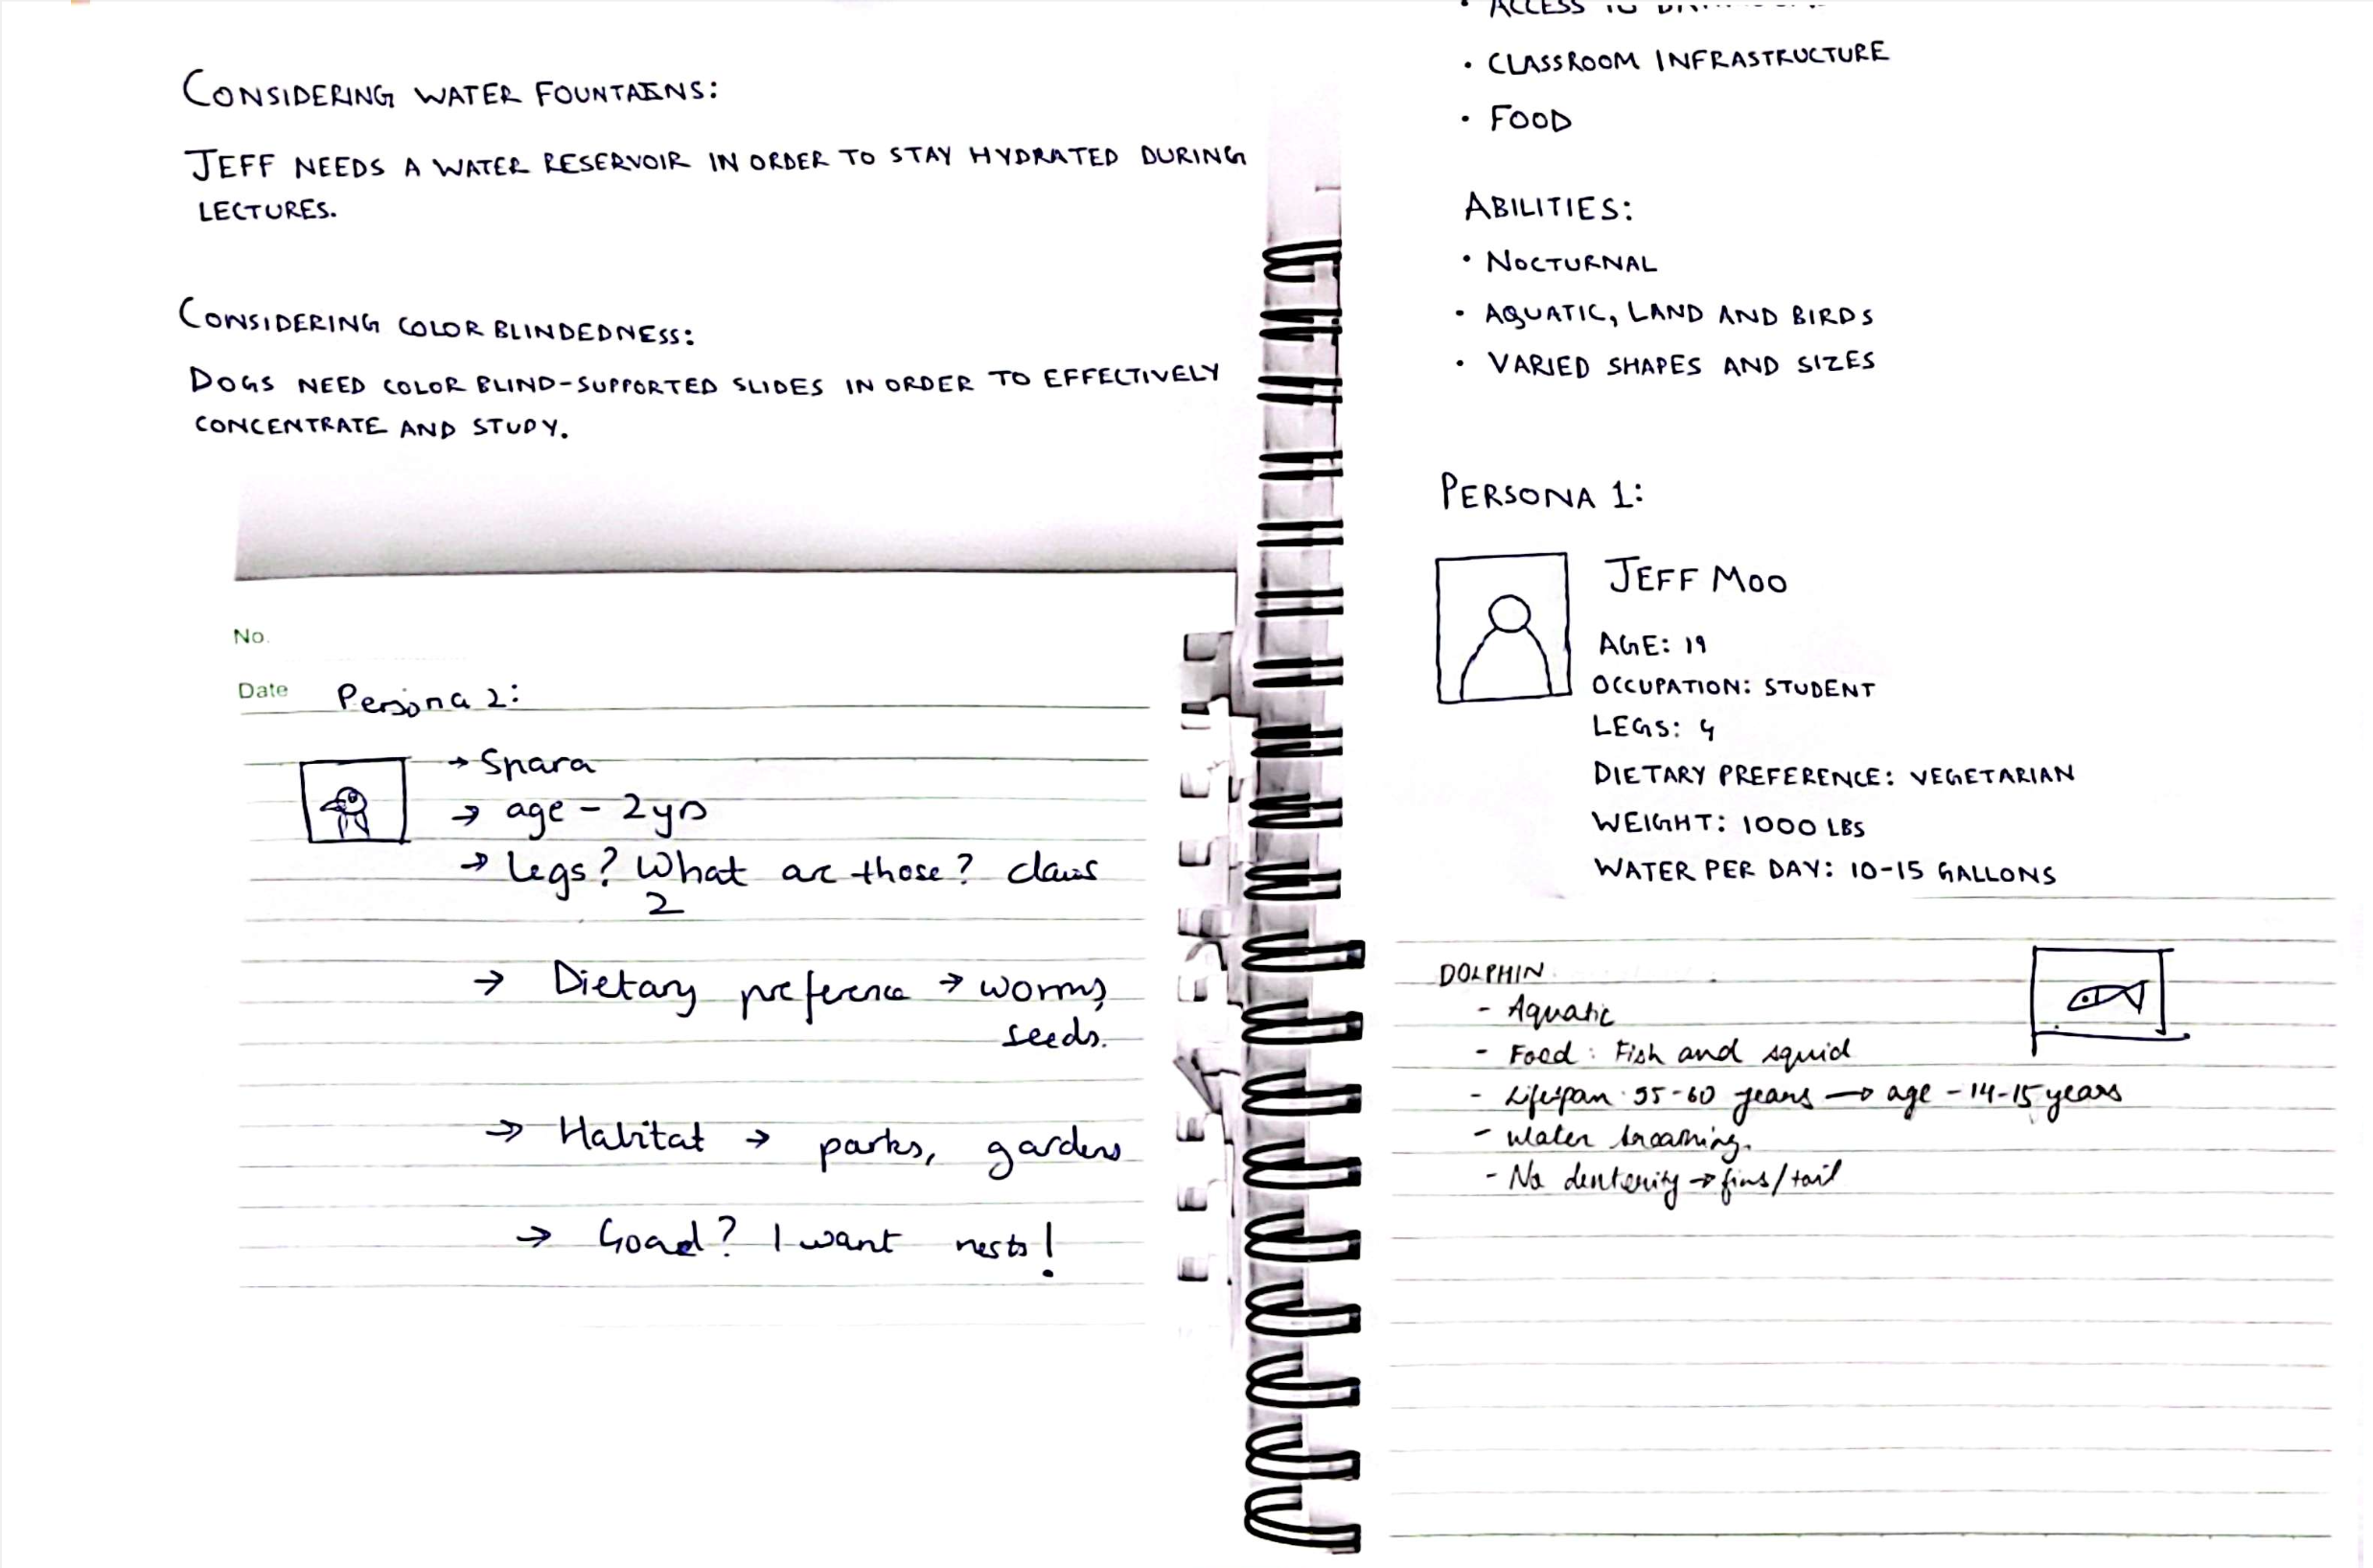 CONSIDERING WATER FOUNTAINS:
JEFF NEEDS A WATER RESERVOIR IN ORDER TO STAY HYDRATED DURING
LECTURES.
CONSIDERING COLOR BLINDEDNESS:
DOGS NEED COLOR BLIND-SUPPORTED SLIDES IN ORDER TO EFFECTIVELY
CONCENTRATE AND STUDY.
No.
Date Persona 2:
→ Spara
→ age - 2yrs
→ legs? What are those? claws
2
→ Dietary preference → worms,
seeds.
→ Habitat → parks, gardens
→ Goad? I want nests!
• ACCESS TO
• CLASSROOM INFRASTRUCTURE
• FOOD
ABILITIES:
• NOCTURNAL
• AQUATIC, LAND AND BIRDS
• VARIED SHAPES AND SIZES
PERSONA 1:
JEFF MOO
AGE: 19
OCCUPATION: STUDENT
LEGS: 4
DIETARY PREFERENCE: VEGETARIAN
WEIGHT: 1000 LBS
WATER PER DAY: 10-15 GALLONS
DOLPHIN
- Aquatic
- Food: Fish and squid
- Lifespan 55-60 years → age - 14-15 years
- water
- No dexterity → fins/tail